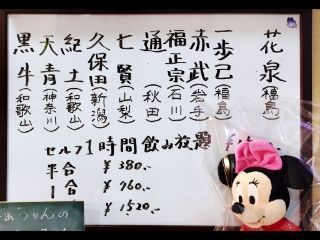 花泉(福島)
一歩己(福島)
赤武(岩手)
福正宗(石川)
通(秋田)
七賢(山梨)
久保田(新潟)
紀土(和歌山)
天青(神奈川)
黒牛(和歌山)
セルフ1時間飲み放題
半合 ¥380.-
一合 ¥760.-
¥1520.-
ちゃんの